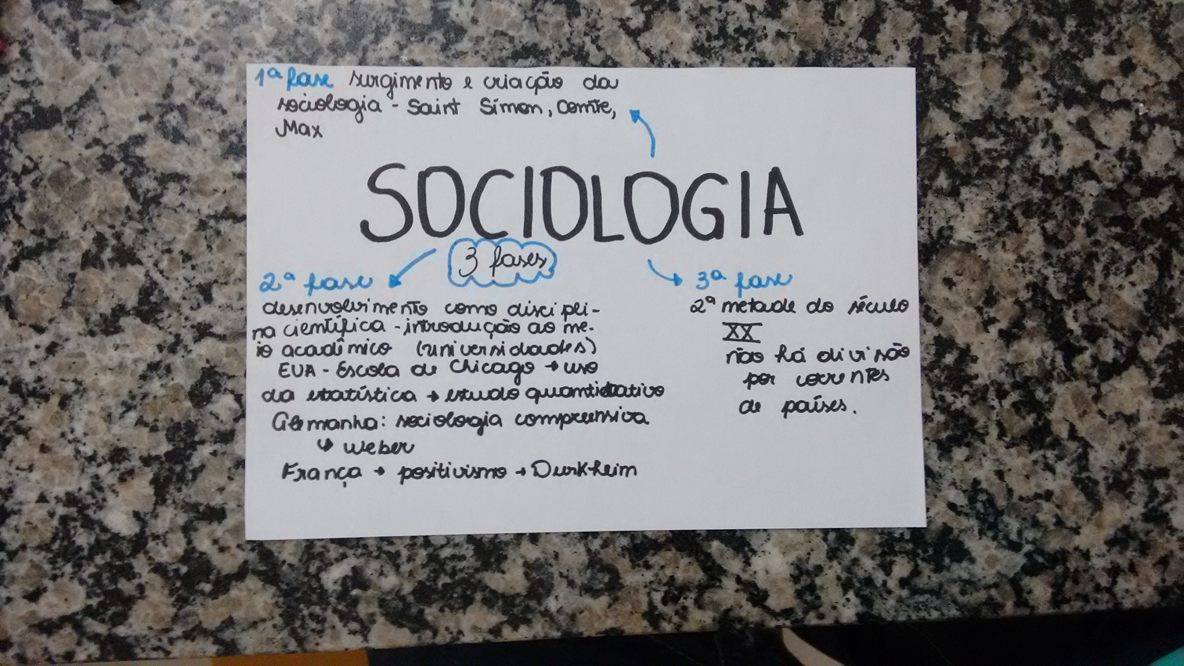 1ª fase surgimento e criação da
sociologia - Saint Simon, Comte,
Max
SOCIOLOGIA
3 fases
2ª fase
desenvolvimento como discipli-
na científica - introdução ao me-
io acadêmico (universidades)
EUA - Escola de Chicago → uso
da estatística → estudo quantitativo
Alemanha: sociologia compreensiva
↳ Weber
França → positivismo → Durkheim
3ª fase
2ª metade do século
XX
não há divisão
por correntes
de países.